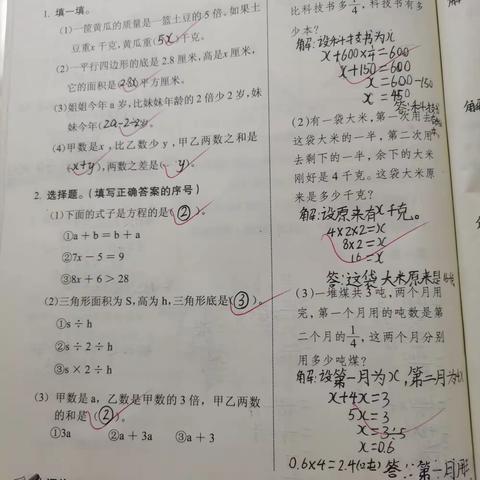 1. 填一填。
(1)一筐黄瓜的质量是一篮土豆的5倍。如果土
豆重x千克,黄瓜重(5x)千克。
(2)一平行四边形的底是2.8厘米,高是x厘米,
它的面积是(2.8x)平方厘米。
(3)姐姐今年a岁,比妹妹年龄的2倍少2岁,妹
妹今年( )岁。
(4)甲数是x,比乙数少y,甲乙两数之和是
(x+y),两数之差是( y )。
2. 选择题。(填写正确答案的序号)
(1)下面的式子是方程的是(②)。
①a+b=b+a
②7x-5=9
③8x+6>28
(2)三角形面积为S,高为h,三角形底是(③)。
①s÷h
②s÷2÷h
③s×2÷h
(3) 甲数是a,乙数是甲数的3倍, 甲乙两数
的和是(②)。
①3a ②a+3a ③a+3
比科技书多1/4, 科技书有多
少本?
解:设科技书为x
x+600×1/4=600
x+150=600
x=600-150
x=450
答:科技书
(2)有一袋大米,第一次用去
这袋大米的一半, 第二次用
去剩下的一半, 余下的大米
刚好是4千克。这袋大米原
来是多少千克?
解:设原来有x千克。
4×2×2=x
8×2=x
16=x
答:这袋大米原来是
(3)一堆煤共3吨,两个月用
完, 第一个月用的吨数是第
二个月的1/4, 这两个月分别
用多少吨煤?
解:设第一月为x,第二月为4x
x+4x=3
5x=3
x=3÷5
x=0.6
0.6×4=2.4(吨) 答:第一月用